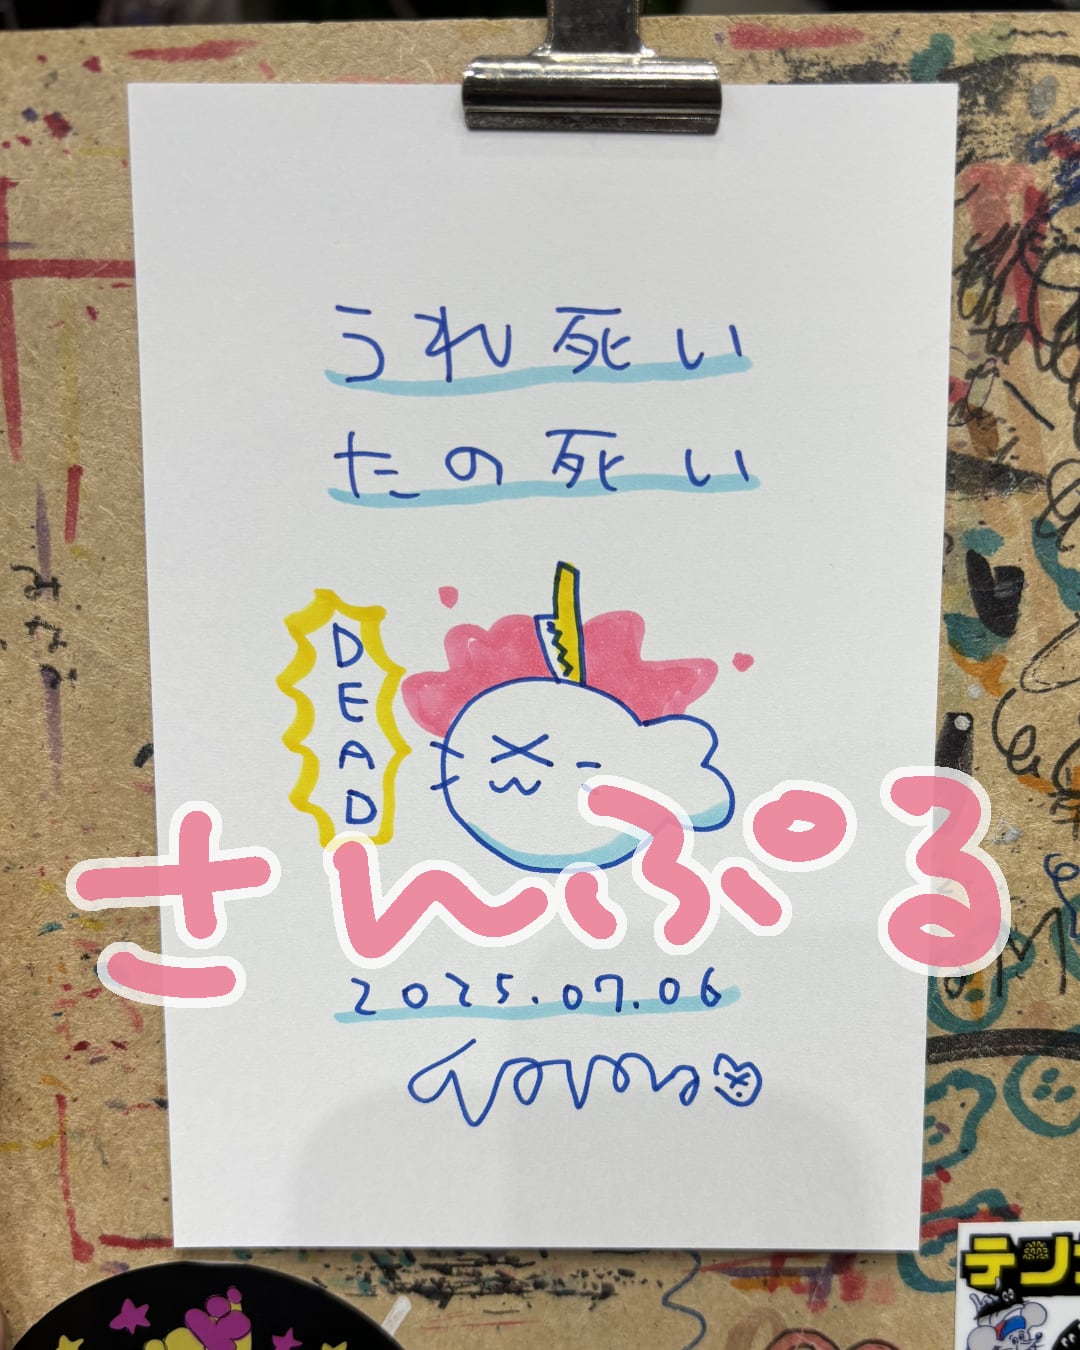 うれ死い
たの死い
DEAD
さんぷる
2025.07.06